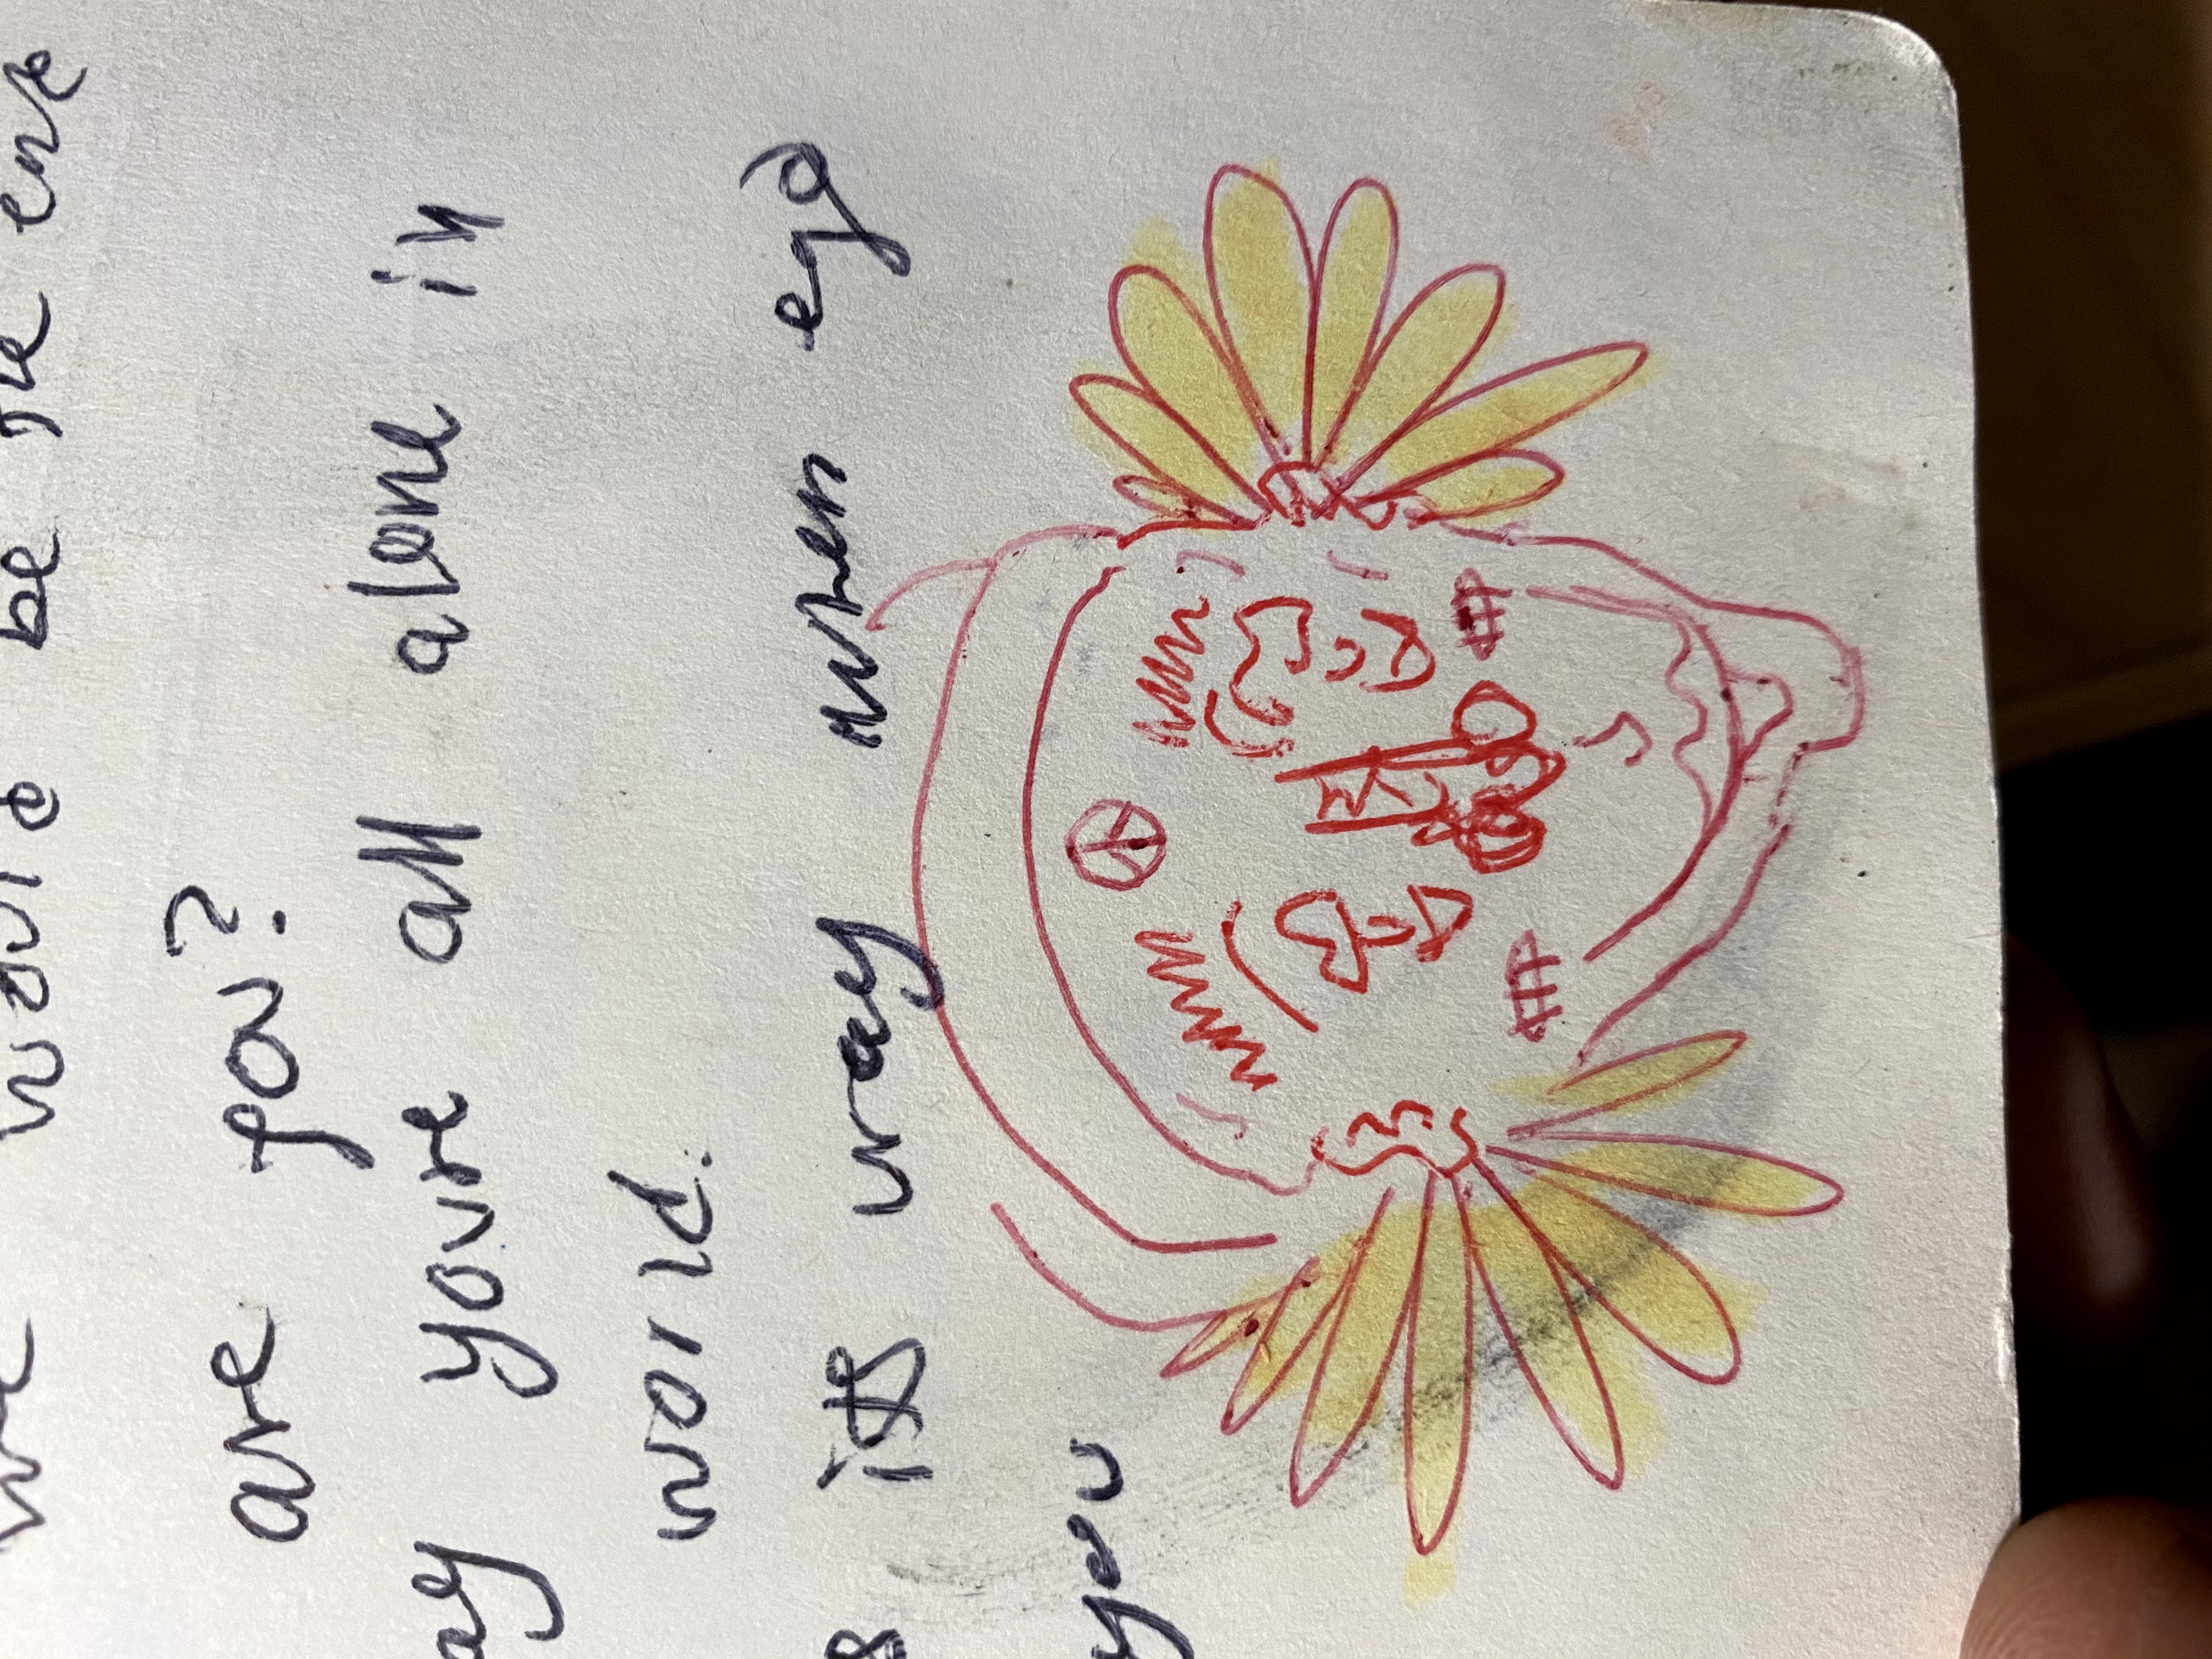 we would be the one
are you?
ay youre all alone in
world.
s its way when ego
you